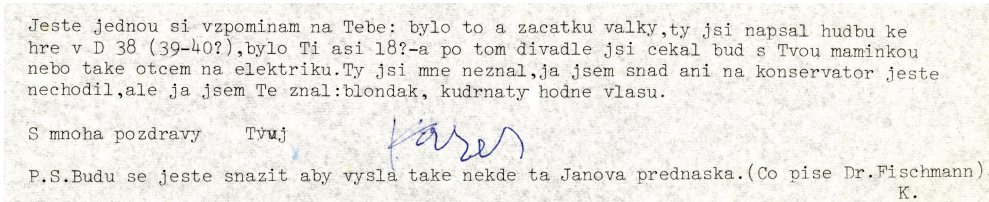 Jeste jednou si vzpominam na Tebe: bylo to a zacatku valky,ty jsi napsal hudbu ke
hre v D 38 (39-40?),bylo Ti asi 18?-a po tom divadle jsi cekal bud s Tvou maminkou
nebo take otcem na elektriku.Ty jsi mne neznal,ja jsem snad ani na konservator jeste
nechodil,ale ja jsem Te znal:blondak, kudrnaty hodne vlasu.
S mnoha pozdravy Tvuj
P.S.Budu se jeste snazit aby vysla take nekde ta Janova prednaska.(Co pise Dr.Fischmann).
K.